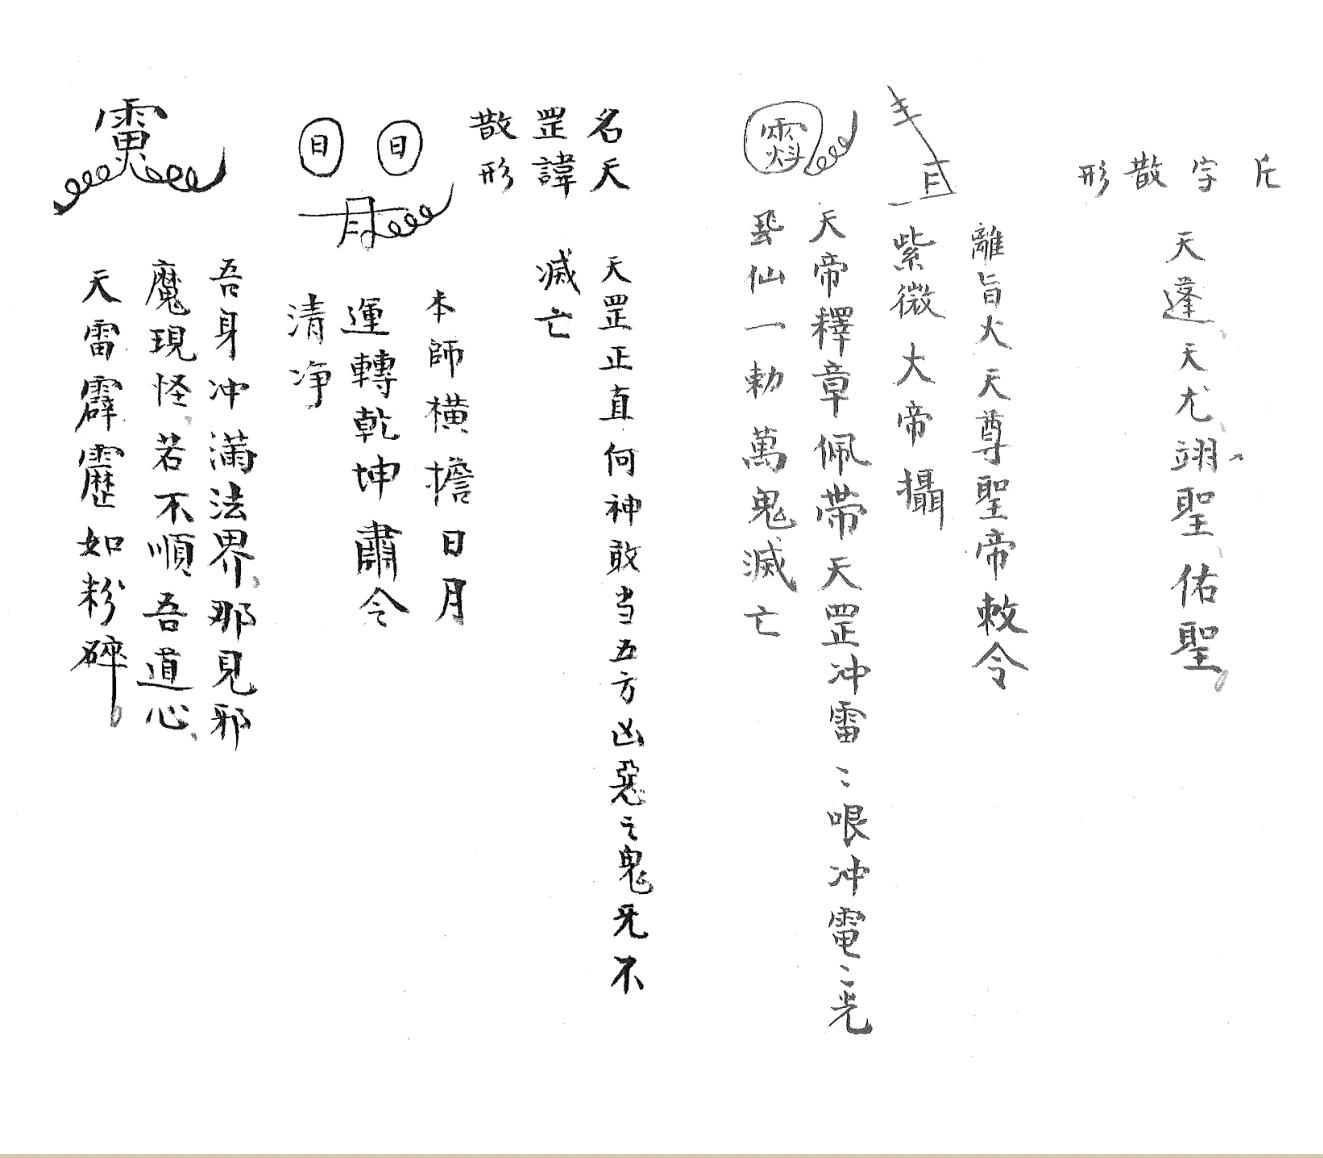 斤字散形
天蓬天尤翊聖佑聖
離旨火天尊聖帝敕令
紫微大帝攝
天帝釋章佩帶天罡冲雷〻哏冲電〻光
仙一勅萬鬼滅亡
名天罡諱散形
天罡正直何神敢当五方凶惡之鬼旡不
滅亡
日 日
月
本師橫擔日月
運轉乾坤肅令
清净
吾身冲滿法界那見邪
魔現怪若不順吾道心
天雷霹靂如粉碎